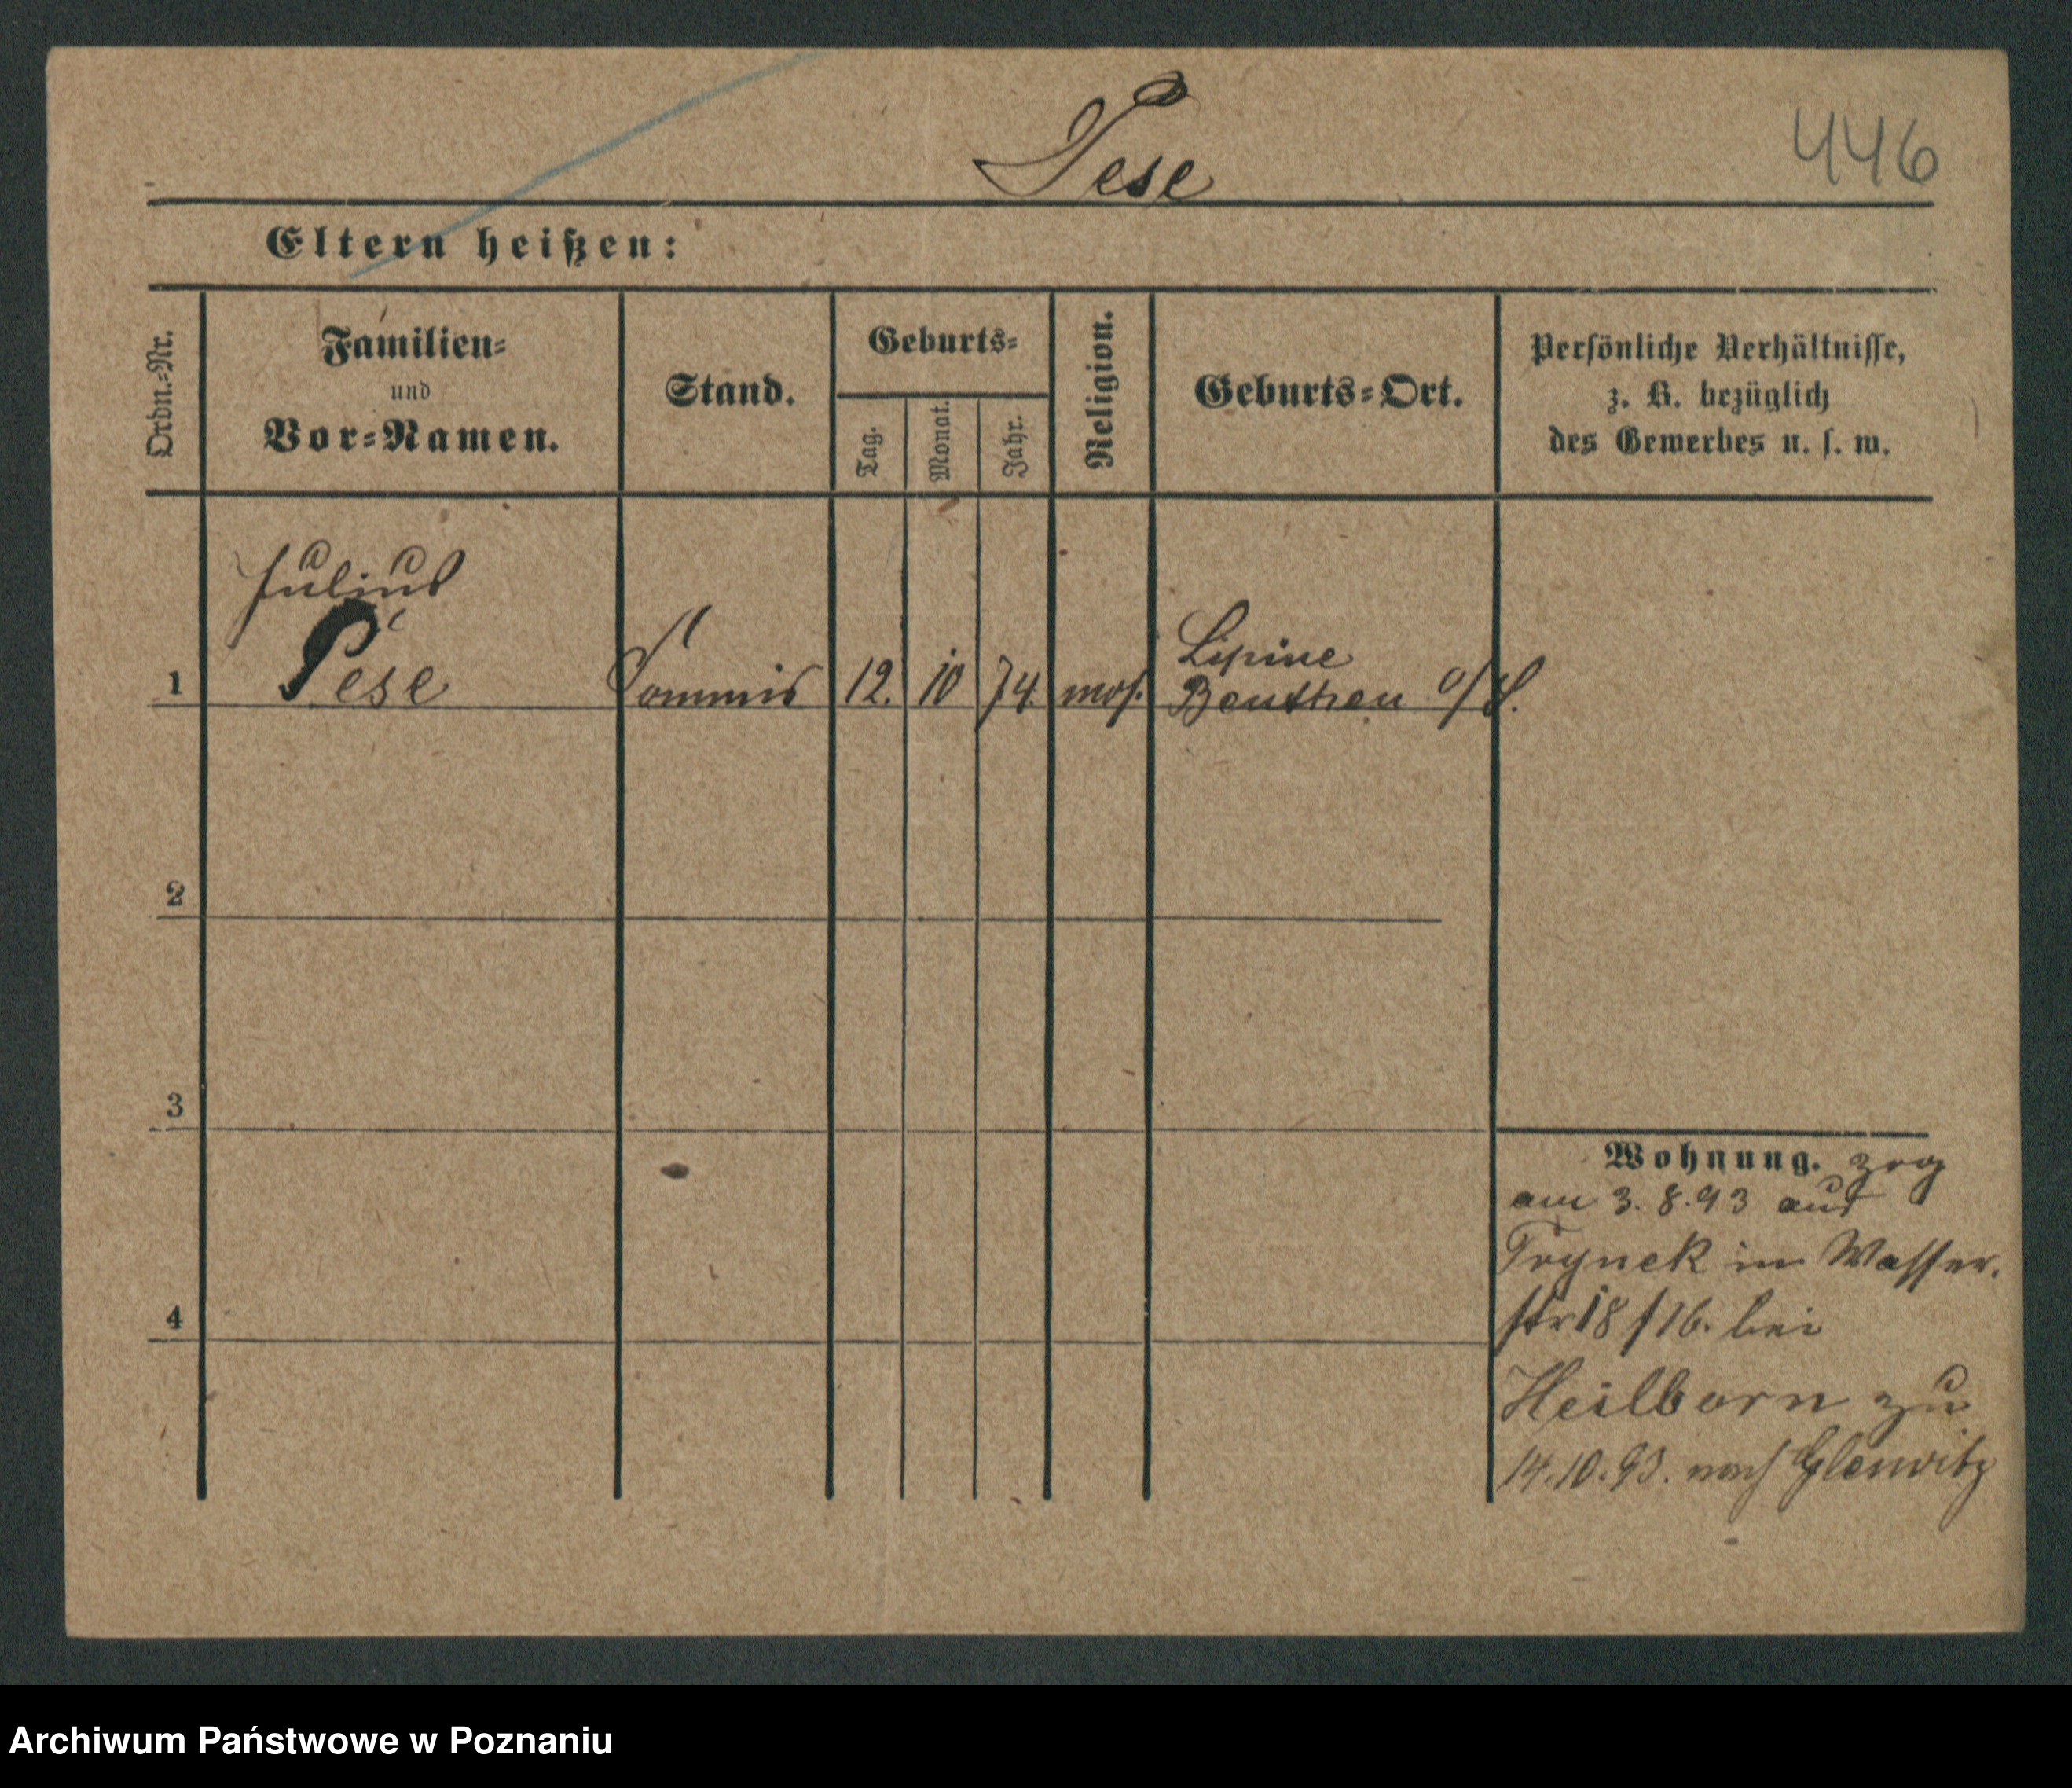 Pese
446
Eltern heißen:
Ordn.-Nr.
Familien-
und
Vor-Namen.
Stand.
Geburts-
Tag.
Monat.
Jahr.
Religion.
Geburts-Ort.
Persönliche Verhältnisse,
z. B. bezüglich
des Gewerbes u. s. w.
Julius
1 Pese Commis 12. 10 74. mos. Lipine
Beuthen O/S.
2
3
4
Wohnung. zog
am 3.8.93 aus
Trynek in Wasser.
str 18 /16. bei
Heilborn zu
14.10.93. nach Gleiwitz
Archiwum Państwowe w Poznaniu